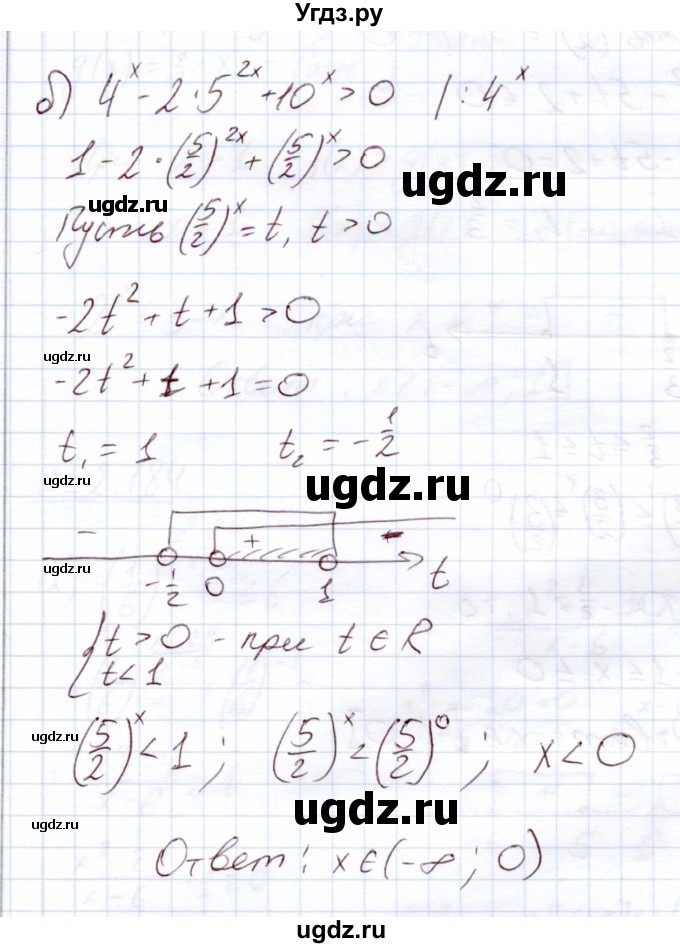 Угдз.ру
б) 4^x - 2·5^{2x} + 10^x > 0 | : 4^x
1 - 2·(5/2)^{2x} + (5/2)^x > 0
ugdz.ru
ugdz.ru
Пусть (5/2)^x = t, t > 0
-2t^2 + t + 1 > 0
ugdz.ru
-2t^2 + t + 1 = 0
t₁ = 1 t₂ = -1/2
ugdz.ru
- + -
-1/2 0 1 t
ugdz.ru
{ t > 0 - при t ∈ R
t < 1
ugdz.ru
(5/2)^x < 1 ; (5/2)^x < (5/2)^0 ; x < 0
ugdz.ru
ugdz.ru
Ответ: x ∈ (-∞ ; 0)
ugdz.ru